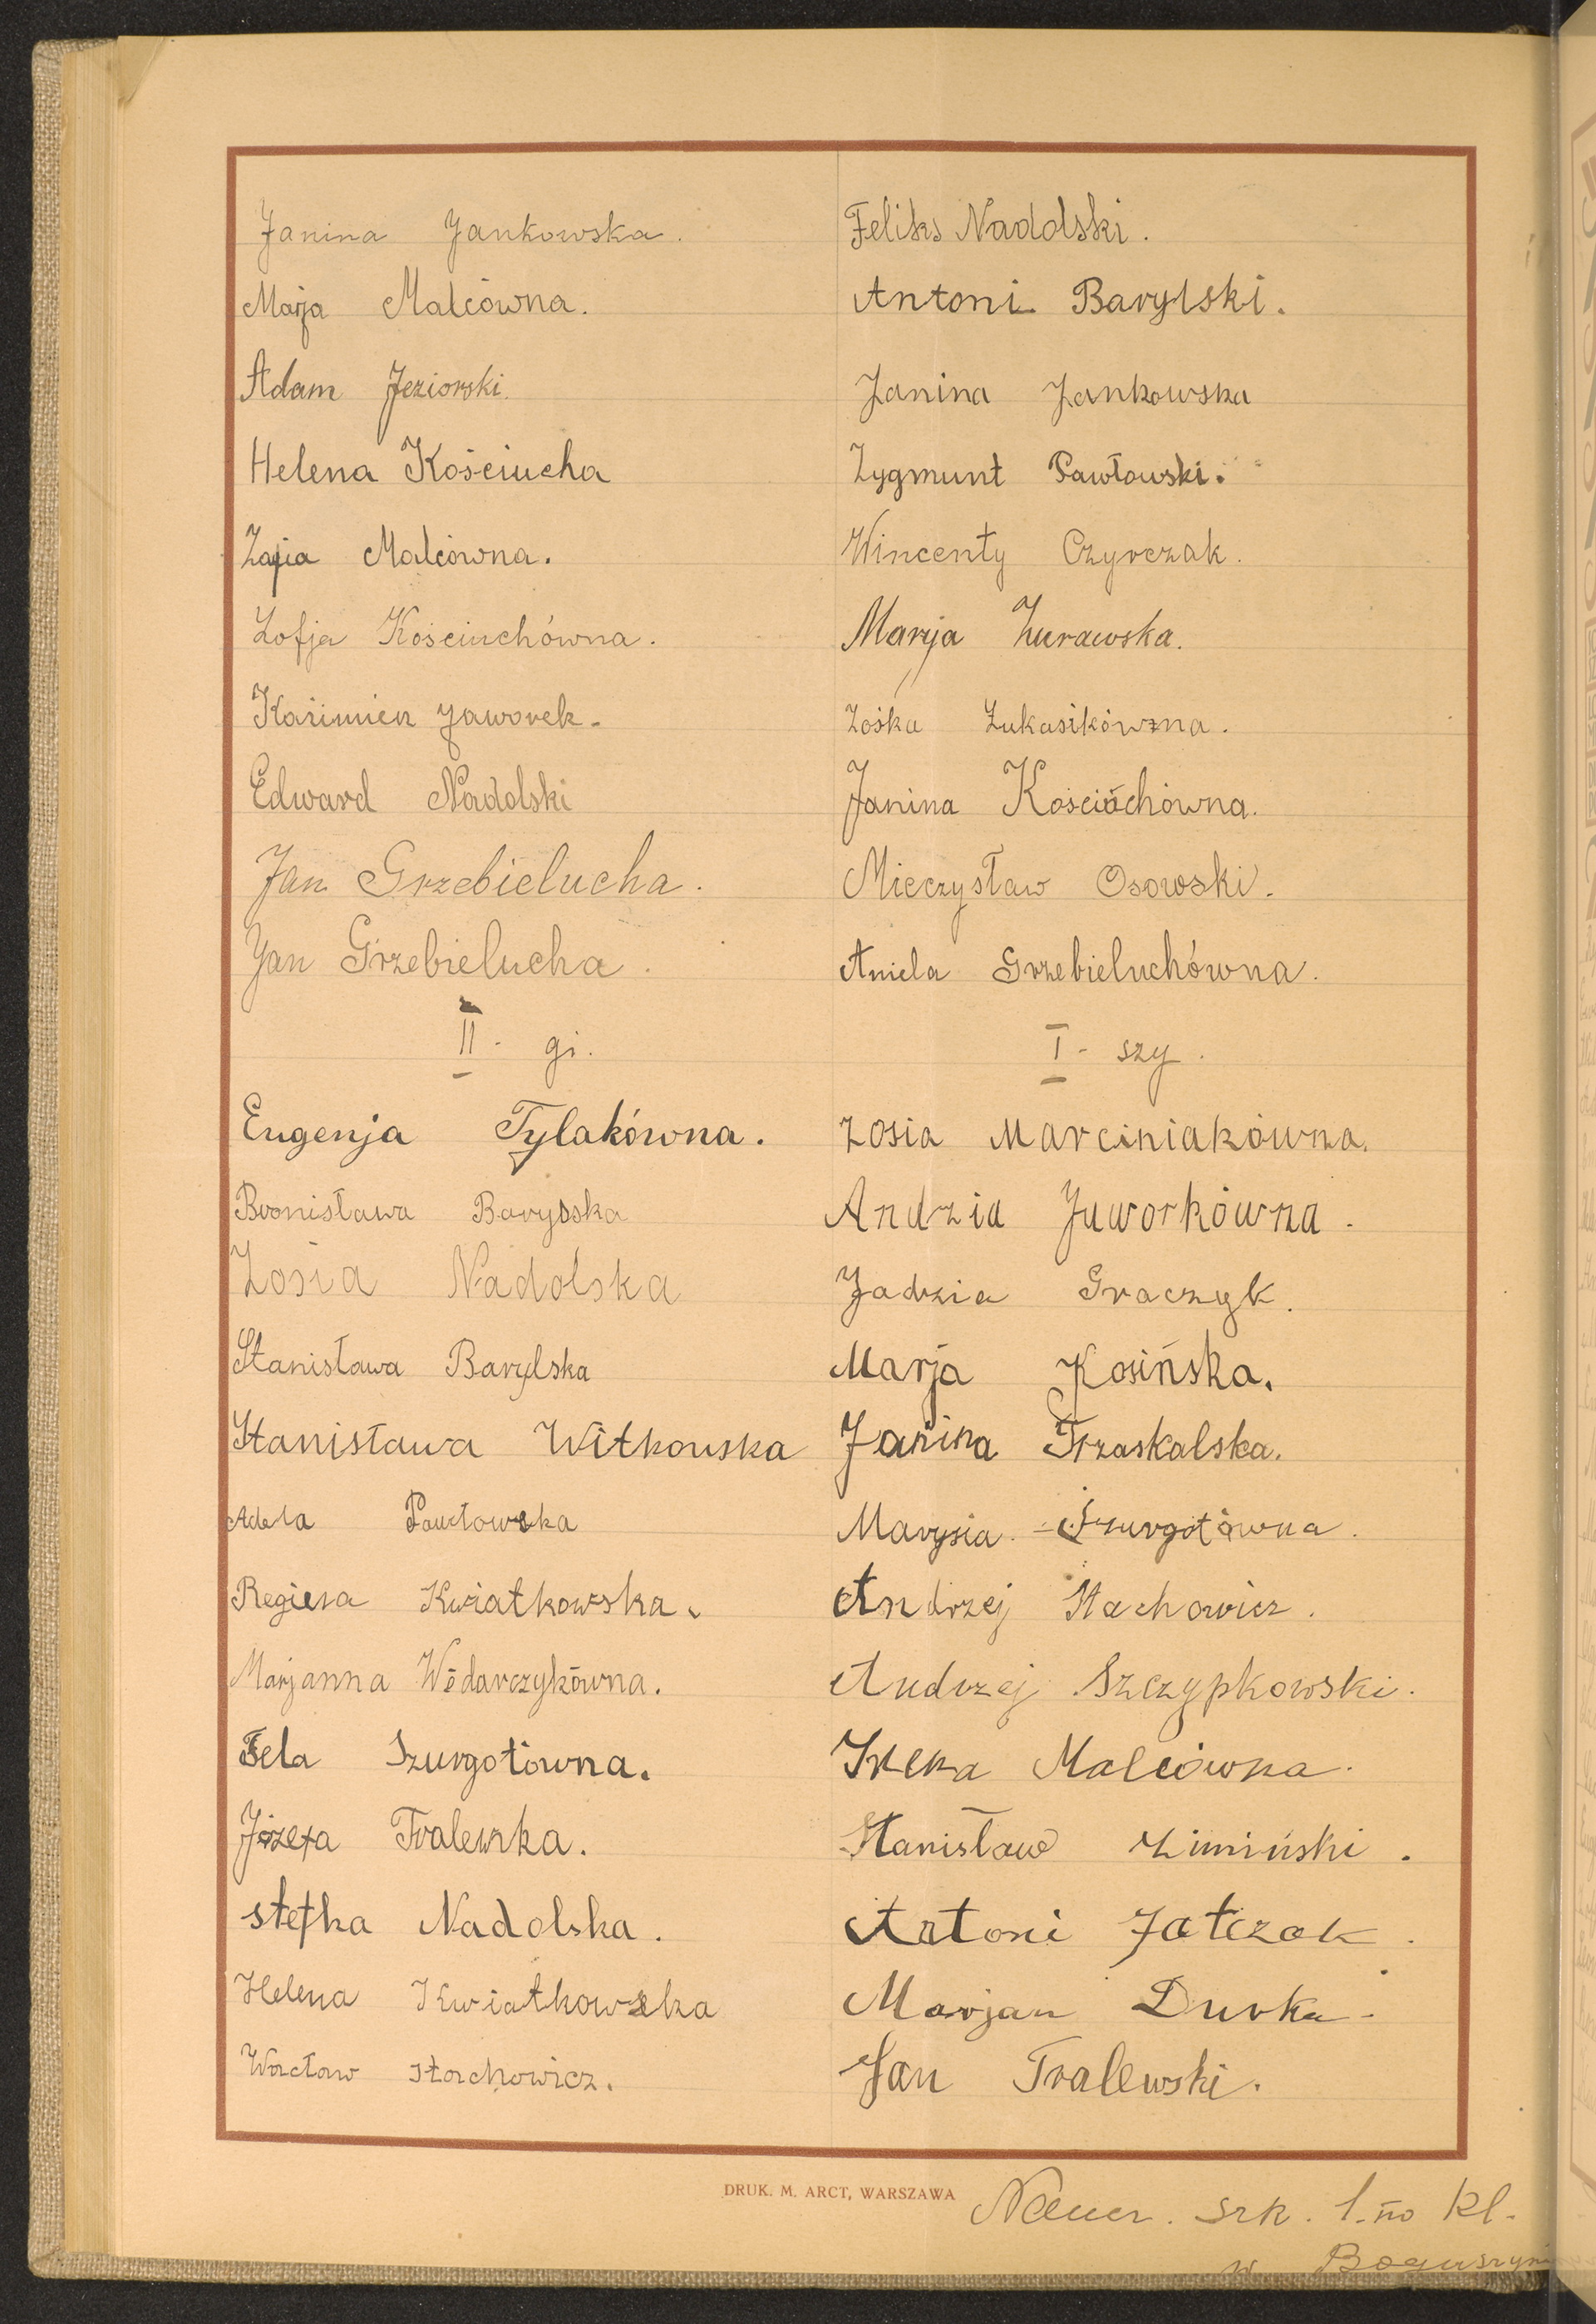 Janina Jankowska.
Marja Malcówna.
Adam Jeziorski.
Helena Kościucha
Zofia Malcówna.
Zofja Kościuchówna.
Kazimierz Jaworek.
Edward Nadolski
Jan Grzebielucha.
Jan Grzebielucha.
II - gi.
Eugenja Tylakówna.
Bronisława Barylska
Zosia Nadolska
Stanisława Barylska
Stanisława Witkowska
Adela Pawłowska
Regiena Kwiatkowska.
Marjanna Wódarczykówna.
Fela Szurgotówna.
Józefa Tralewska.
stefka Nadolska.
Helena Kwiatkowska
Wacław Stachowicz.
Feliks Nadolski.
Antoni Barylski.
Janina Jankowska
Zygmunt Pawłowski.
Wincenty Czyrczak.
Marja Żurawska.
Zośka Łukasikówzna.
Janina Kościuchówna.
Mieczysław Osowski.
Aniela Grzebieluchówna.
I - szy.
Zosia Marciniakówna.
Andzia Jaworkówna.
Jadzia Graczyk.
Marja Kosińska.
Janina Trzaskalska.
Marysia Szurgotówna.
Andrzej Stachowicz.
Andrzej Szczypkowski.
Irena Malcówna.
Stanisław Zimiński.
Antoni Jatczak.
Marjan Durka.
Jan Tralewski.
DRUK. M. ARCT, WARSZAWA
Naucz. szk. 1-no kl.
w